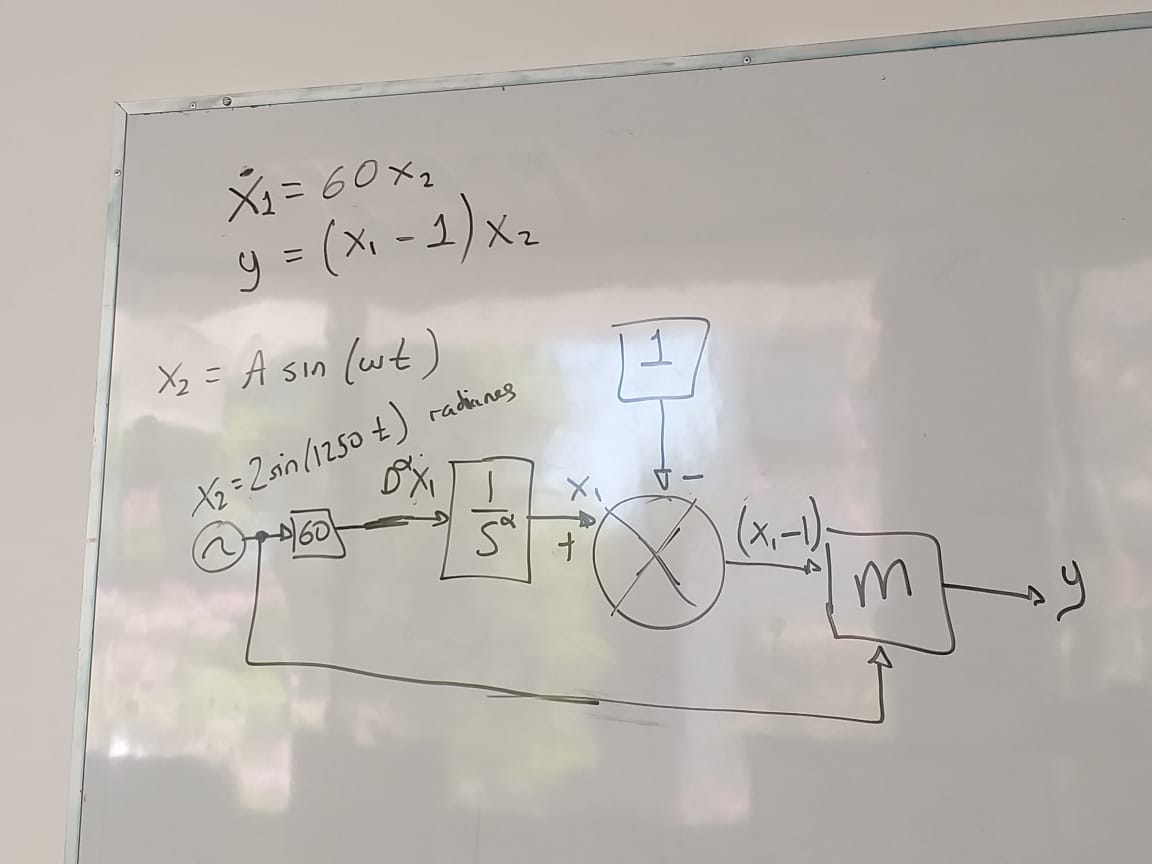 ẋ₁ = 60 x₂
y = (x₁ - 1) x₂
x₂ = A sin (ωt)
x₂ = 2 sin (1250 t) radianes
1
D^αx₁
x₁
-
~
60
1/S^α
+
(x₁-1)
m
y